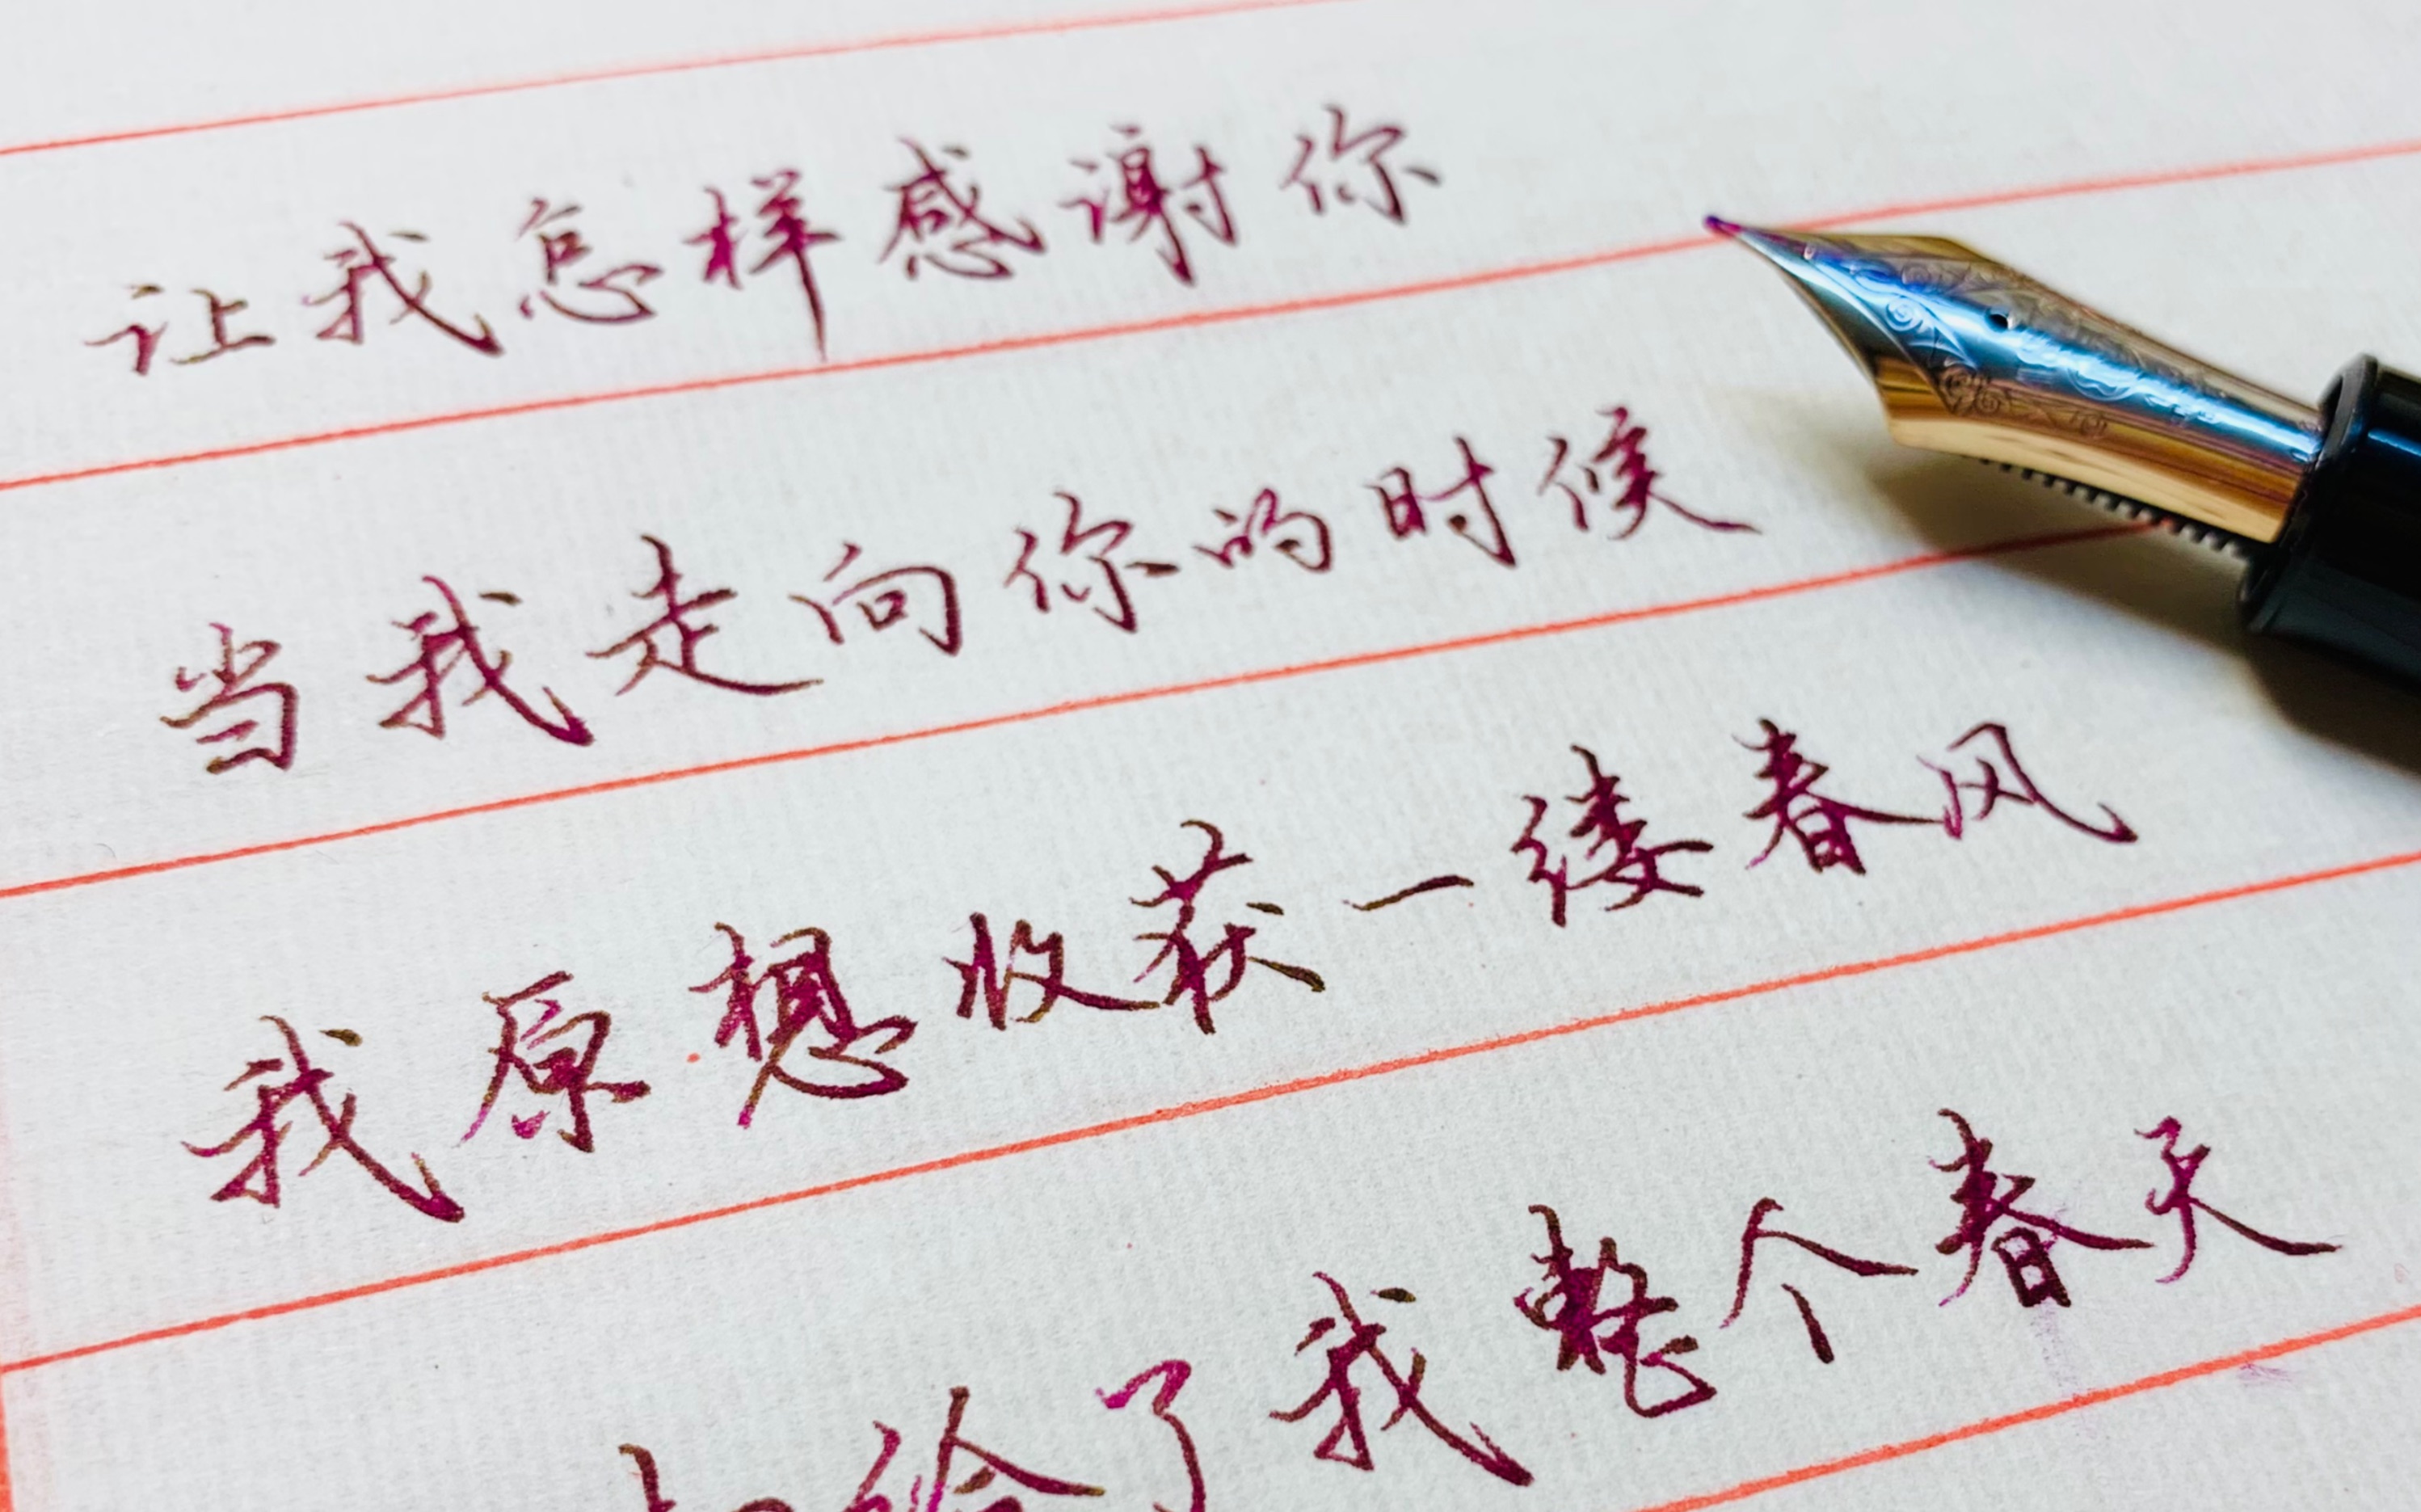 让我怎样感谢你
当我走向你的时候
我原想收获一缕春风
给了我整个春天